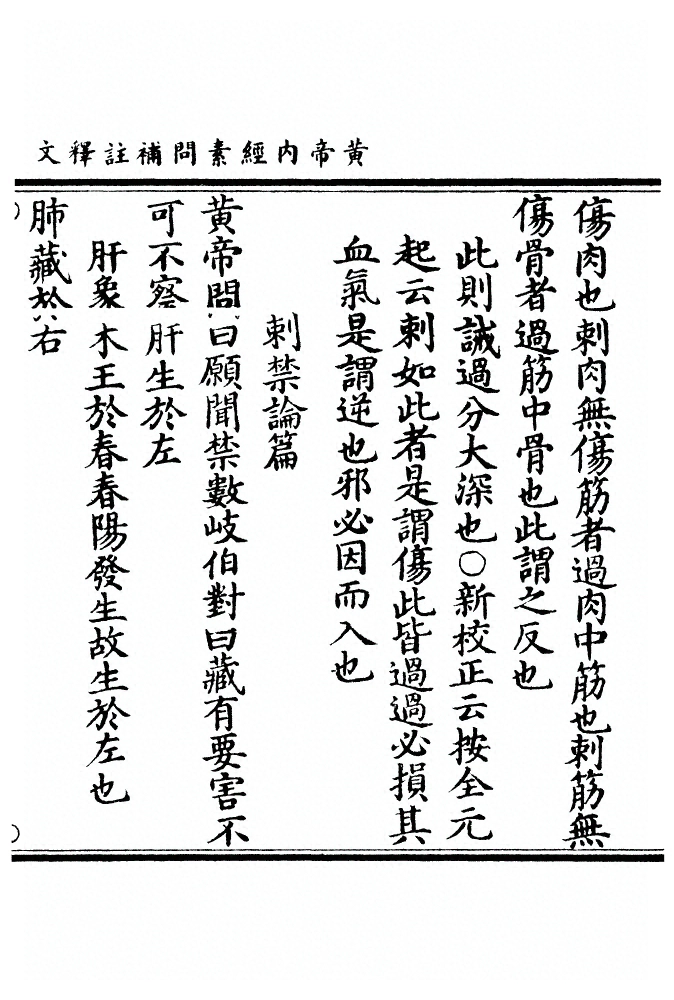 黃帝內經素問補註釋文
傷肉也刺肉無傷筋者過肉中筋也刺筋無
傷骨者過筋中骨也此謂之反也
此則誡過分大深也○新校正云按全元
起云刺如此者是謂傷此皆過過必損其
血氣是謂逆也邪必因而入也
刺禁論篇
黃帝問曰願聞禁數岐伯對曰藏有要害不
可不察肝生於左
肝象木王於春春陽發生故生於左也
肺藏於右